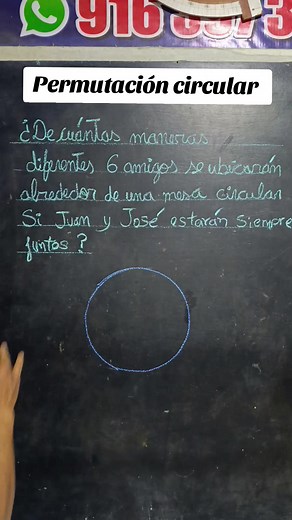 916
Permutación circular
¿De cuántas maneras
diferentes 6 amigos se ubicarán
alrededor de una mesa circular
Si Juan y José estarán siempre
juntos?